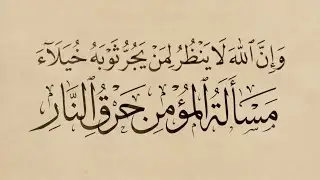 وَإِنَّ ٱللَّهَ لَا يَنْظُرُ لِمَنْ يَجُرُّ ثَوْبَهُ خُيَلَآءَ
مَسْأَلَةُ ٱلْمُؤْمِنِ حَرْقُ ٱلنَّارِ